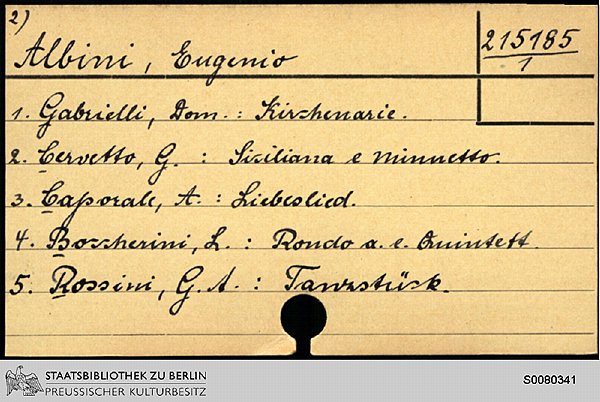 2)
Albini, Eugenio
215185
1
1. Gabrielli, Dom. : Kirchenarie.
2. Cervetto, G. : Siziliana e minuetto.
3. Caporale, A. : Liebeslied.
4. Boccherini, L. : Rondo a. e. Quintett.
5. Rossini, G. A. : Tanzstück.
STAATSBIBLIOTHEK ZU BERLIN
PREUSSISCHER KULTURBESITZ
S0080341